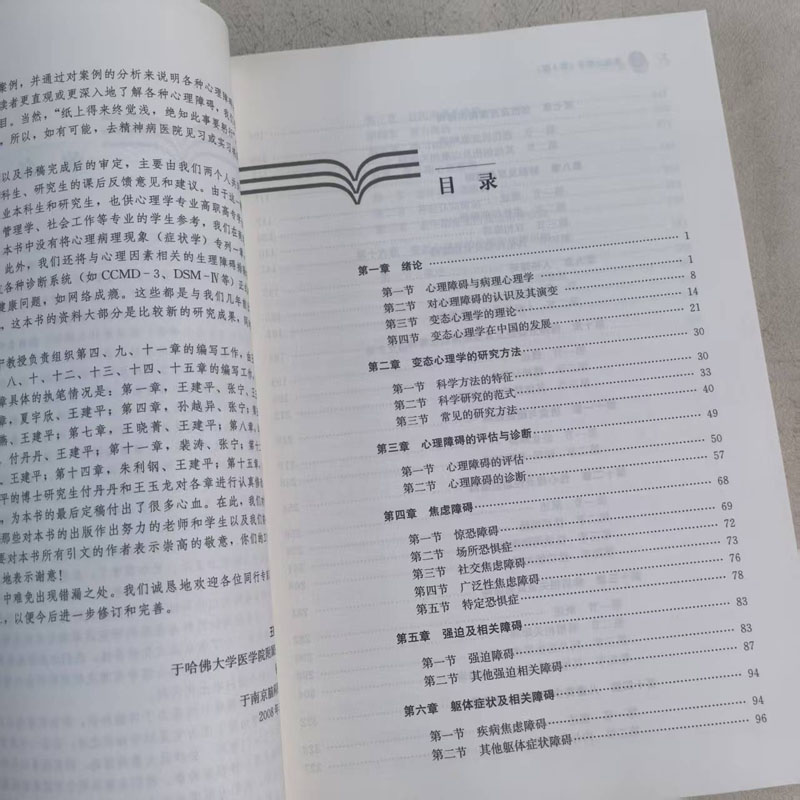 案例,并通过对案例的分析来说明各种心理障
读者更直观或更深入地了解各种心理障碍,我
目。当然,“纸上得来终觉浅,绝知此事要
所以,如有可能,去精神病医院见习或实习
以及书稿完成后的审定,主要由我们两个人
科生、研究生的课后反馈意见和建议。由于
业本科生和研究生,也供心理学专业高职高专
管理学、社会工作等专业的学生参考,我们在
本书中没有将心理病理现象(症状学)专列一章
此外,我们还将与心理因素相关的生理障碍
各种诊断系统(如CCMD-3、DSM-Ⅳ等)正
健康问题,如网络成瘾。这些都是与我们几年前
这本书的资料大部分是比较新的研究成果,
教授负责组织第四、九、十一章的编写工作,
八、十、十二、十三、十四、十五章的编写工作
章具体的执笔情况是:第一章,王建平、张宁、
章,夏宇欣、王建平;第四章,孙越异、张宁;
王建平;第七章,王晓菁、王建平;第八章,
付丹丹、王建平;第十一章,裴涛、张宁;
王建平;第十四章,朱利钢、王建平;第十五章
平的博士研究生付丹丹和王玉龙对各章进行认真
为本书的最后定稿付出了很多心血。在此,我们
那些对本书的出版作出努力的老师和学生以及我们
要对本书所有引文的作者表示崇高的敬意,你们
地表示谢意!
中难免出现错漏之处。我们诚恳地欢迎各位同行专
以便今后进一步修订和完善。
于哈佛大学医学院
于南京脑
2008年
目 录
第一章 绪论 1
第一节 心理障碍与病理心理学 1
第二节 对心理障碍的认识及其演变 8
第三节 变态心理学的理论 14
第四节 变态心理学在中国的发展 21
第二章 变态心理学的研究方法 30
第一节 科学方法的特征 30
第二节 科学研究的范式 33
第三节 常见的研究方法 40
第三章 心理障碍的评估与诊断 49
第一节 心理障碍的评估 50
第二节 心理障碍的诊断 57
第四章 焦虑障碍 68
第一节 惊恐障碍 69
第二节 场所恐惧症 72
第三节 社交焦虑障碍 73
第四节 广泛性焦虑障碍 76
第五节 特定恐惧症 78
第五章 强迫及相关障碍 83
第一节 强迫障碍 83
第二节 其他强迫相关障碍 87
第六章 躯体症状及相关障碍 94
第一节 疾病焦虑障碍 94
第二节 其他躯体症状障碍 96